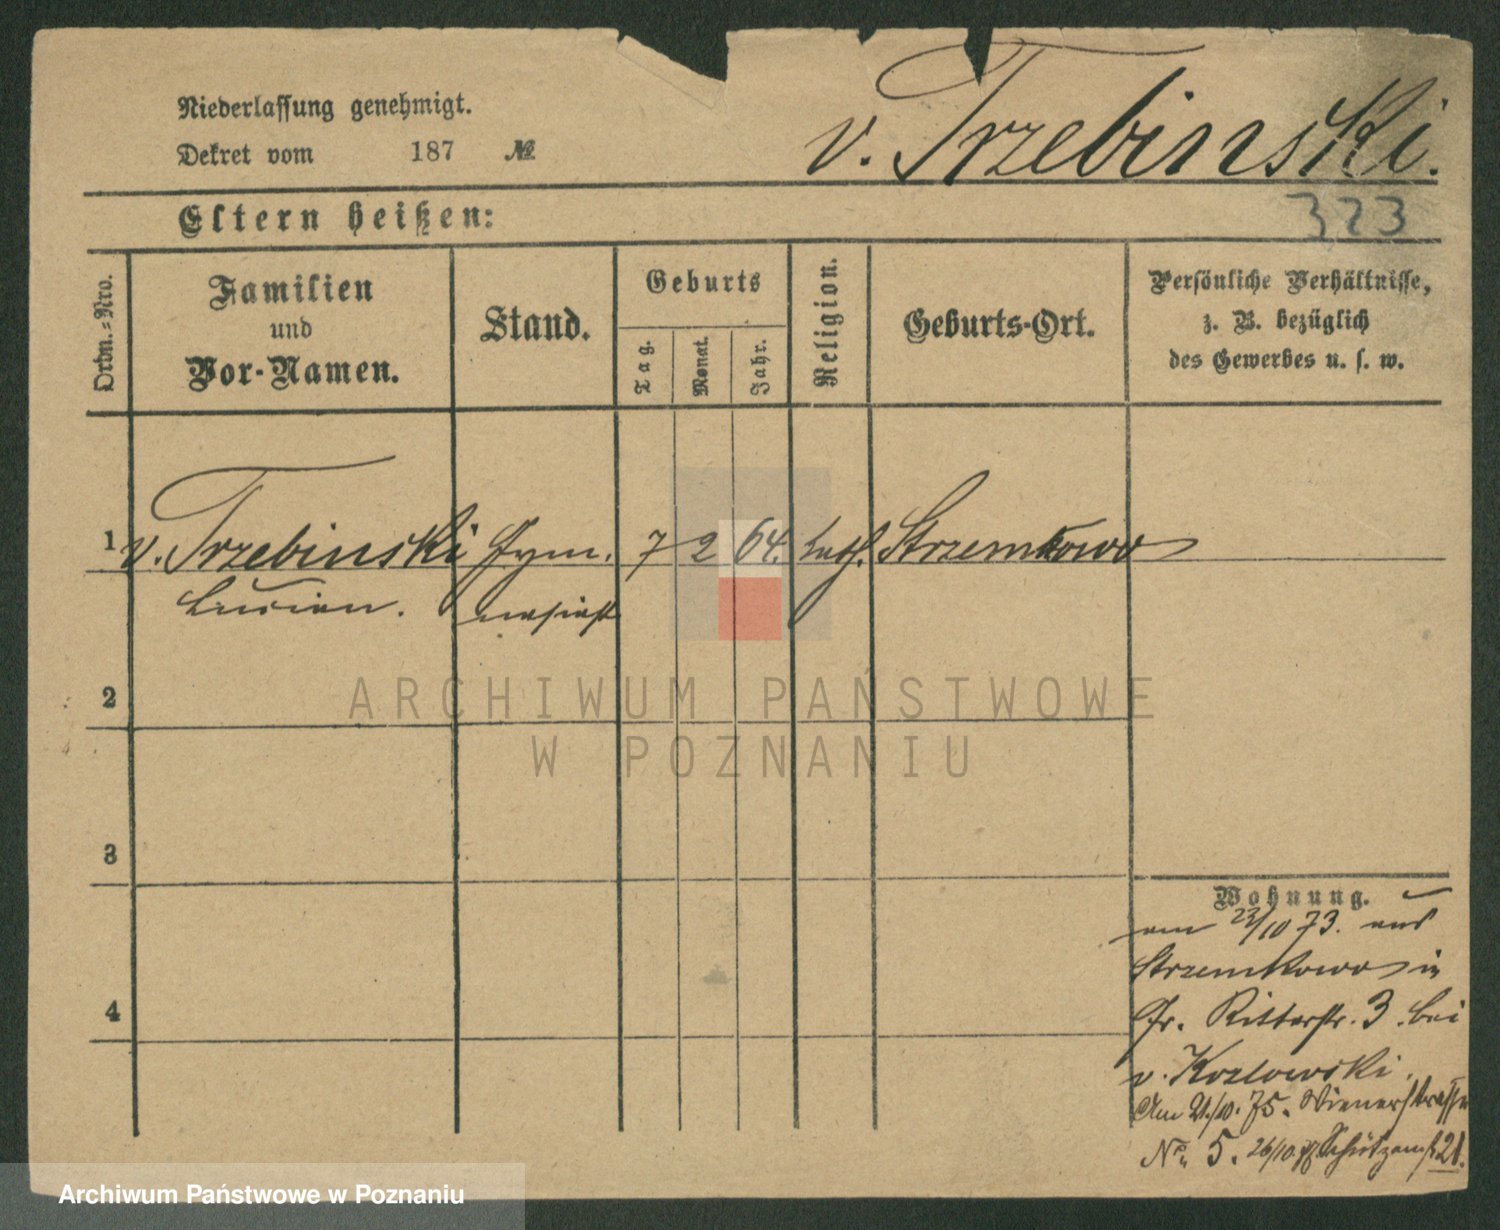 Niederlassung genehmigt.
Dekret vom 187 №
v. Trzebinski.
323
Eltern heißen:
Ordn.=Nro.
Familien
und
Vor-Namen.
Stand.
Geburts
Tag.
Monat.
Jahr.
Religion.
Geburts-Ort.
Persönliche Verhältnisse,
z. B. bezüglich
des Gewerbes u. s. w.
1 v. Trzebinski Gym- 7 2 64. kath. Strzemkowo
Lucian. nasiast
ARCHIWUM PAŃSTWOWE
W POZNANIU
2
3
4
Wohnung.
am 23/10 73. aus
Strzemkowo in
Gr. Ritterstr. 3. bei
v. Kozlowski.
Am 21./10. 75. Wienerstrasse
No. 5. 26/10. Schützenstr 21.
Archiwum Państwowe w Poznaniu